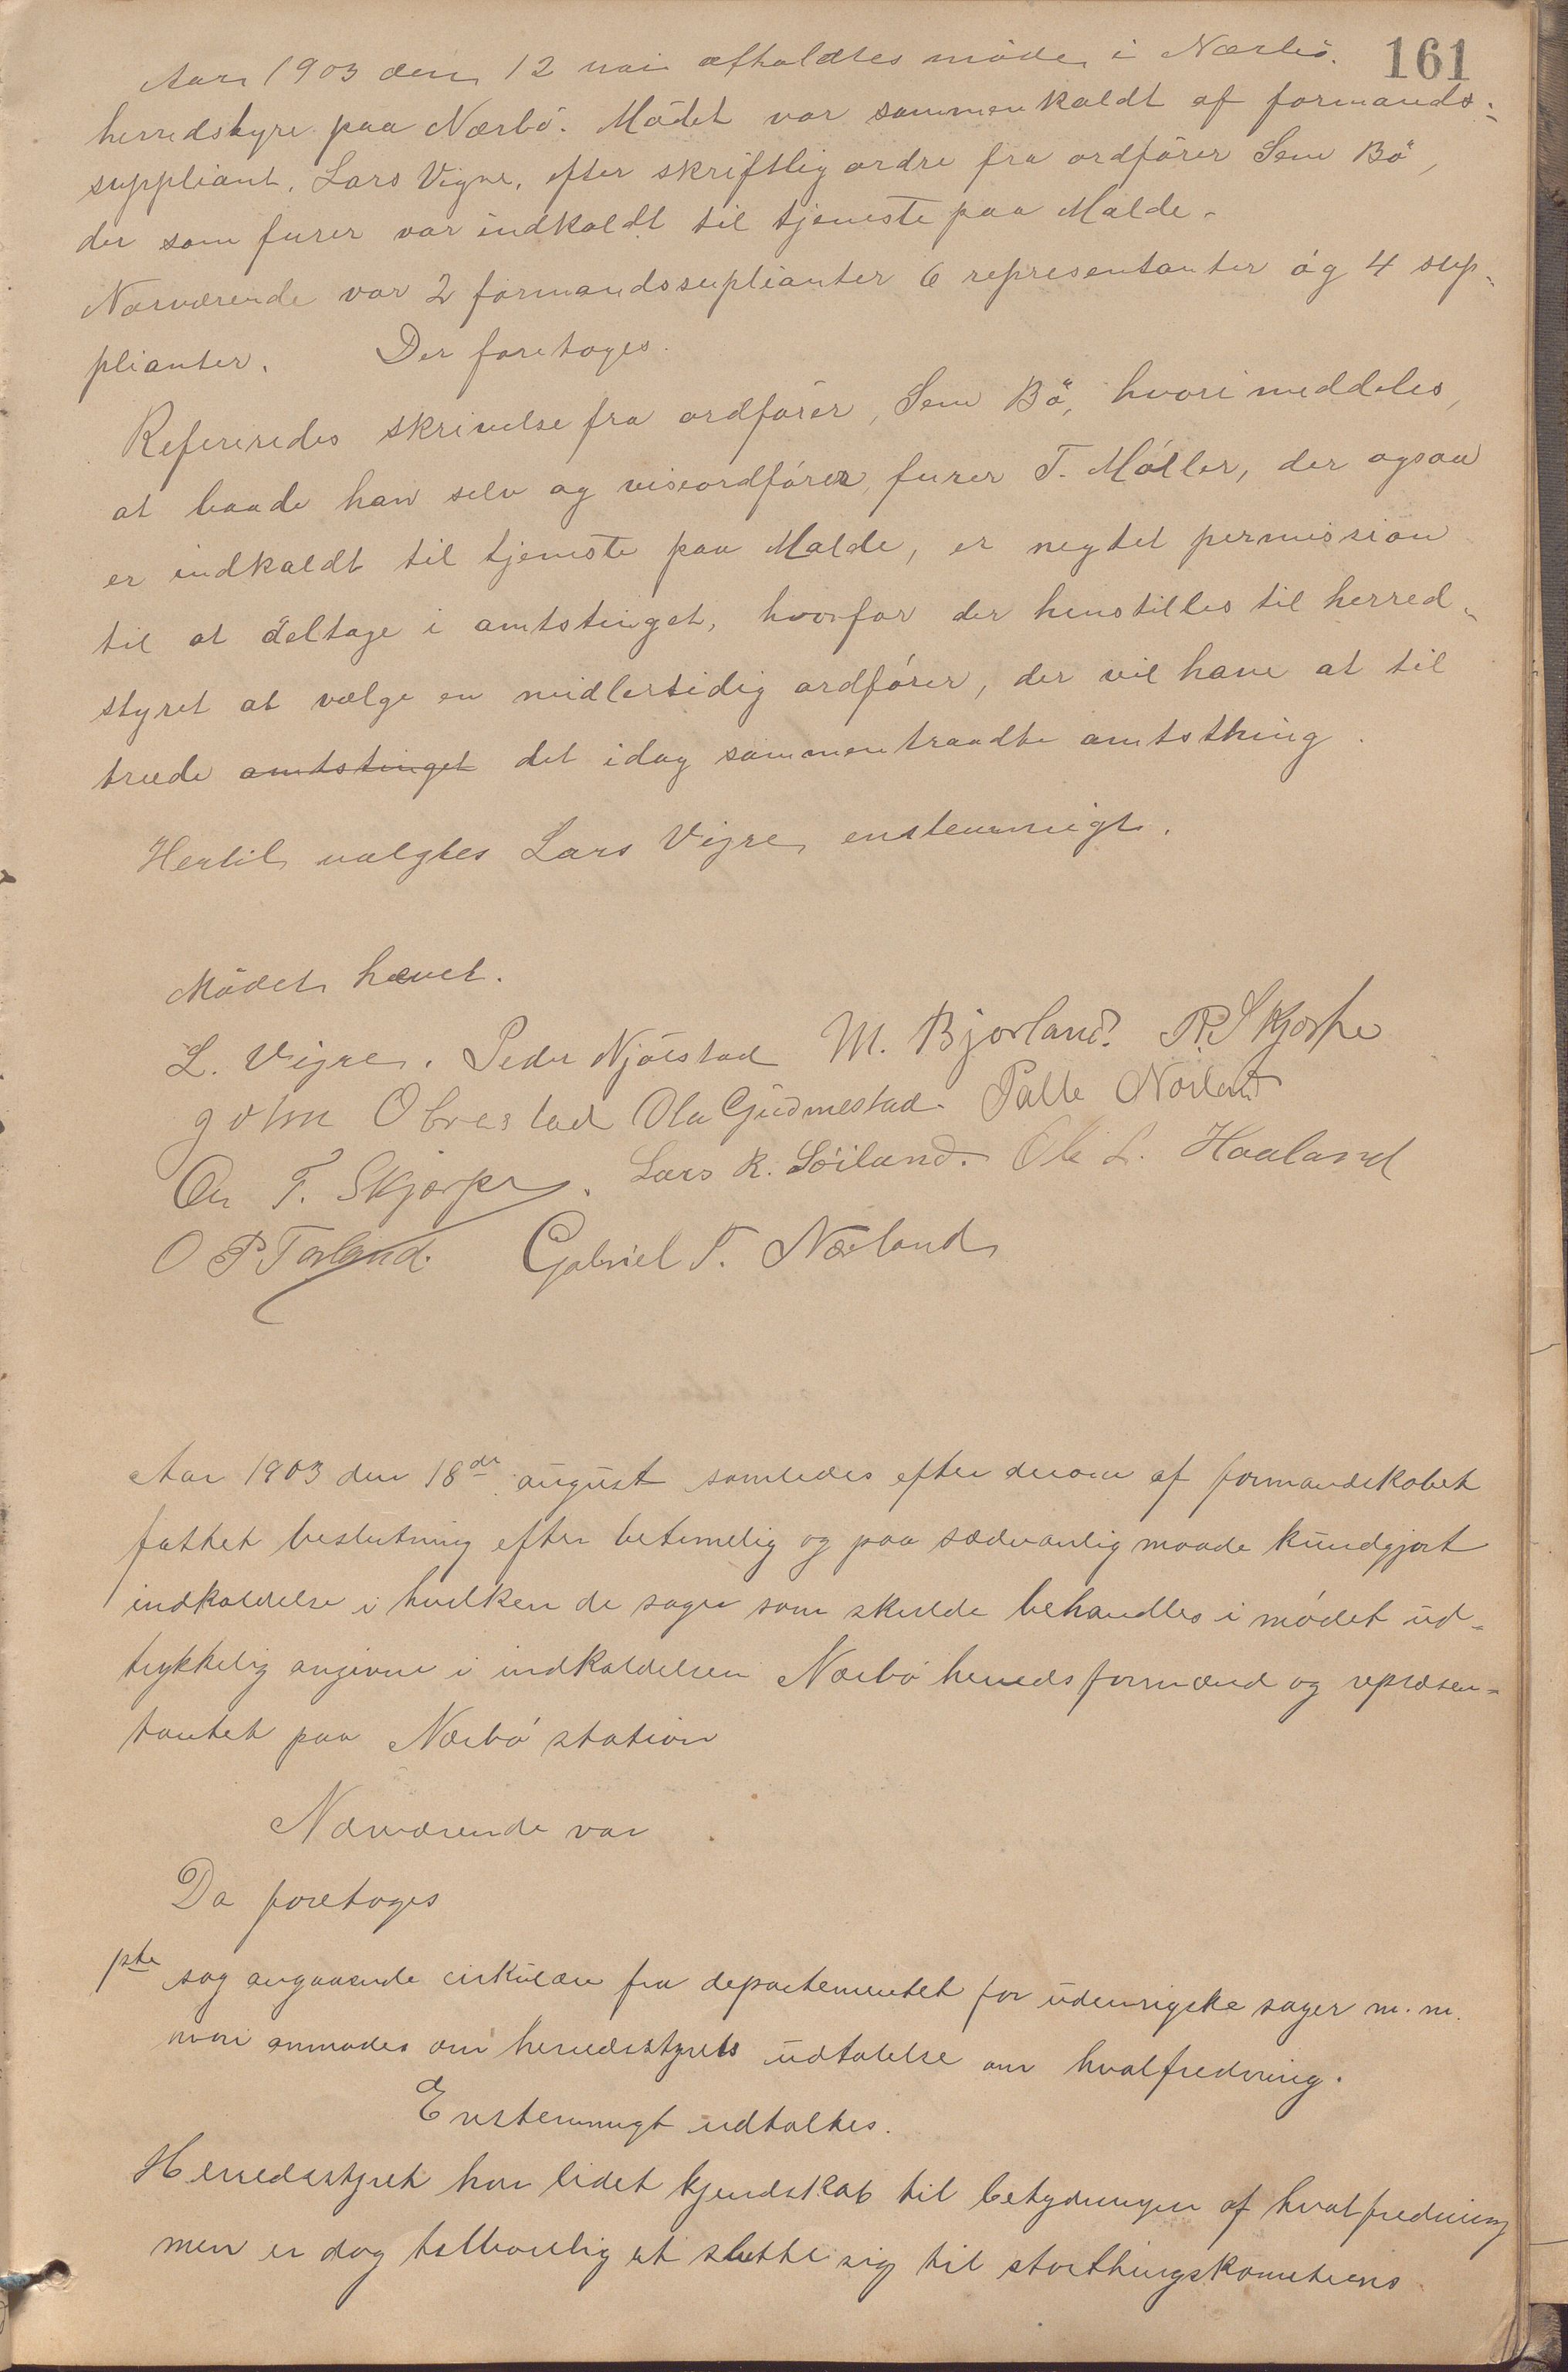 161
Aar 1903 den 12 mai afholdtes møde i Nærbö.
herredstyre paa Nærbö. Mödet var sammenkaldt af formands-
suppliant, Lars Vigre, efter skriftlig ordre fra ordförer Sem Bö,
der som furer var indkaldt til tjeneste paa Malde.
Nærværende var 2 formandssuplianter 6 representanter og 4 sup-
plianter. Der foretoges.
Refereredes skrivelse fra ordförer, Sem Bö, hvori meddeles,
at baade han selv og viseordförer, furer T. Möller, der ogsaa
er indkaldt til tjeneste paa Malde, er negtet permission
til at deltage i amtstinget, hvorfor der henstilles til herred-
styret at vælge en midlertidig ordförer, der vil have at til
træde amtstinget det idag sammentraadte amtsthing.
Hertil valgtes Lars Vigre enstemmigt.
Mödet hævet.
L. Vigre. Peder Njölstad M. Bjorland. R. Skjorpe
John Obrestad Ola Gudmestad. Palle Nærland
On T. Skjorpe. Lars R. Söiland. Ole L. Haaland
O P Torland. Gabriel T. Nærland
Aar 1903 den 18de august samledes efter derom af formandskabet
fattet beslutning efter betimelig og paa sædvanlig maade kundgjort
indkaldelse i hvilken de sager som skulde behandles i mödet ud-
trykkelig angivne i indkaldelsen Nærbö herreds formænd og repræsen-
tantet paa Nærbö station
Nærværende var
Da foretoges
1ste sag angaaende cirkulære fra departementet for udenrigske sager m.m.
hvori anmodes om herredsstyrets udtalelse om hvalfredning.
Enstemmigt udtaltes.
Herredsstyret har lidet kjendskab til betydningen af hvalfredning
men er dog tilböielig at slutte sig til storthingskomiteens